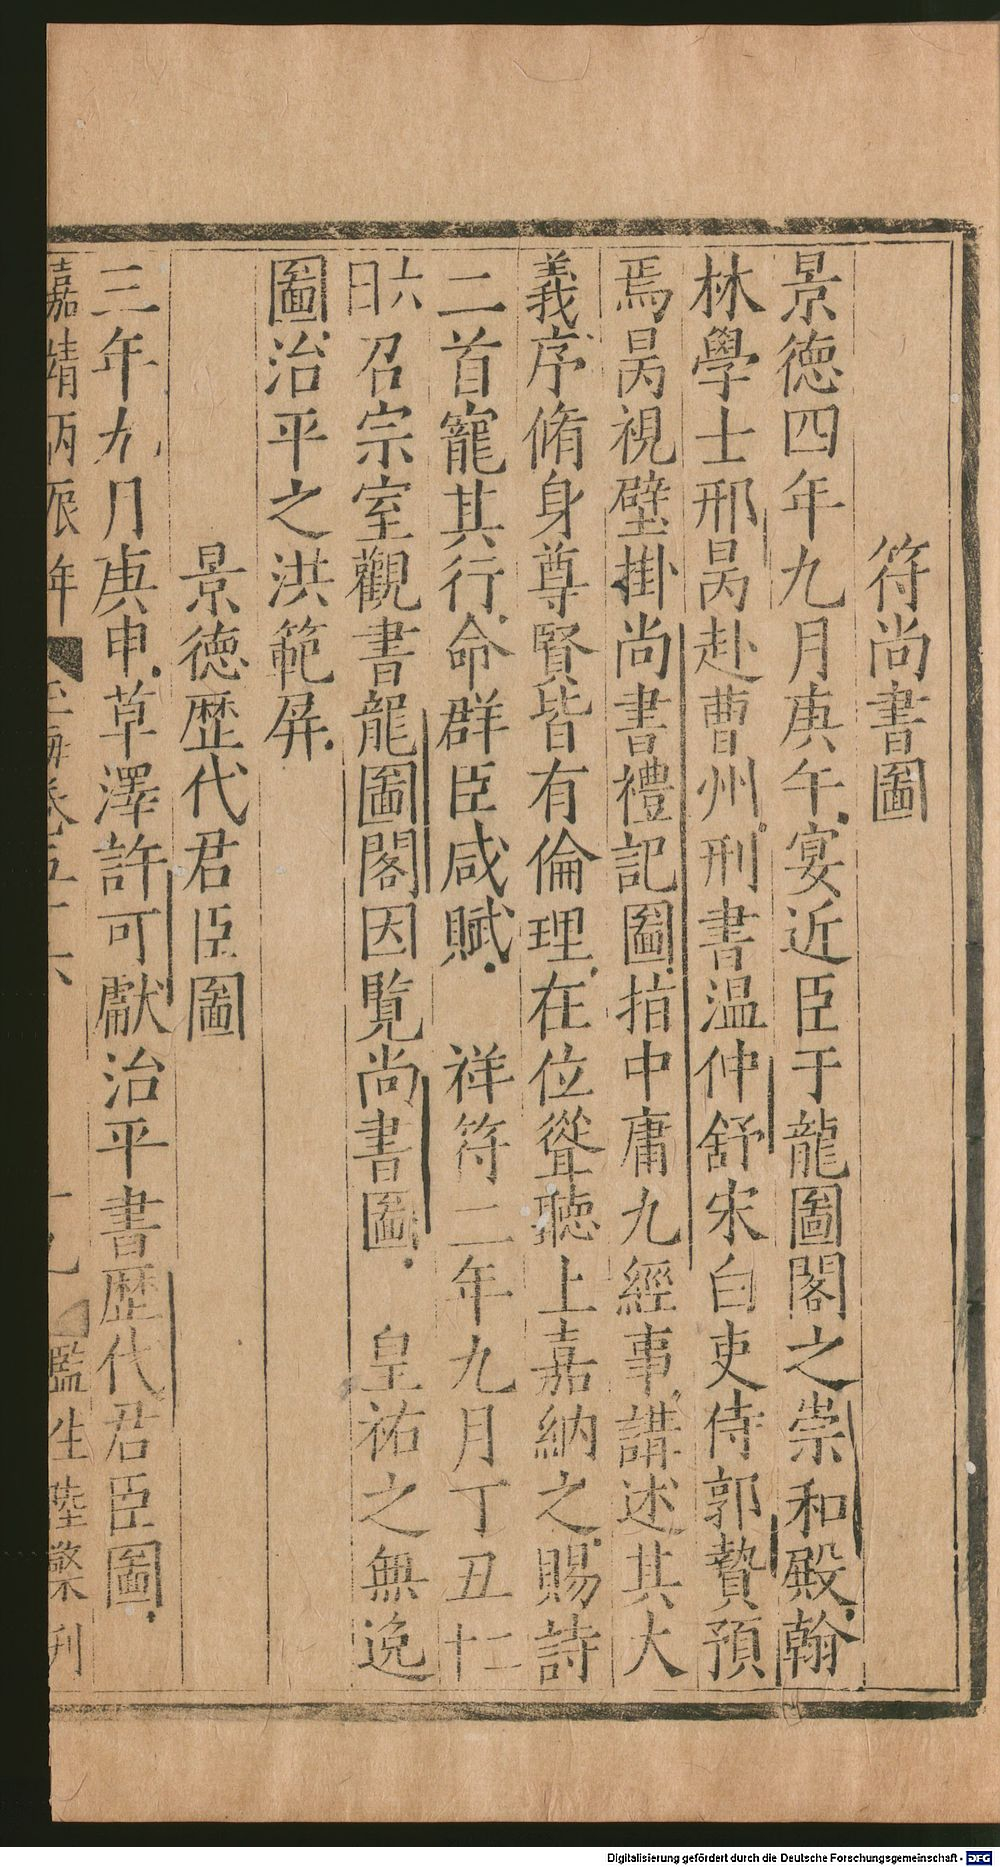 符尚書圖
景德四年九月庚午宴近臣于龍圖閣之崇和殿翰
林學士邢昺赴曹州刑書温仲舒宋白吏侍郭贄預
焉昺視壁掛尚書禮記圖指中庸九經事講述其大
義序脩身尊賢皆有倫理在位聳聽上嘉納之賜詩
二首寵其行命群臣咸賦 祥符二年九月丁丑二十
六日召宗室觀書龍圖閣因覽尚書圖 皇祐之無逸
圖治平之洪範屏
景德歷代君臣圖
三年九月庚申草澤許可獻治平書歷代君臣圖
嘉靖丙辰年 玉海卷五十六 十九 監生陸檠刊
Digitalisierung gefördert durch die Deutsche Forschungsgemeinschaft - DFG